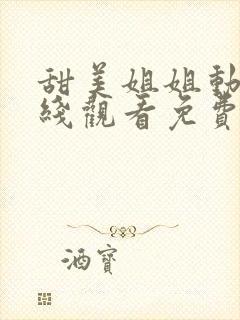 甜美姐姐動
綫觀看免費
酒寶